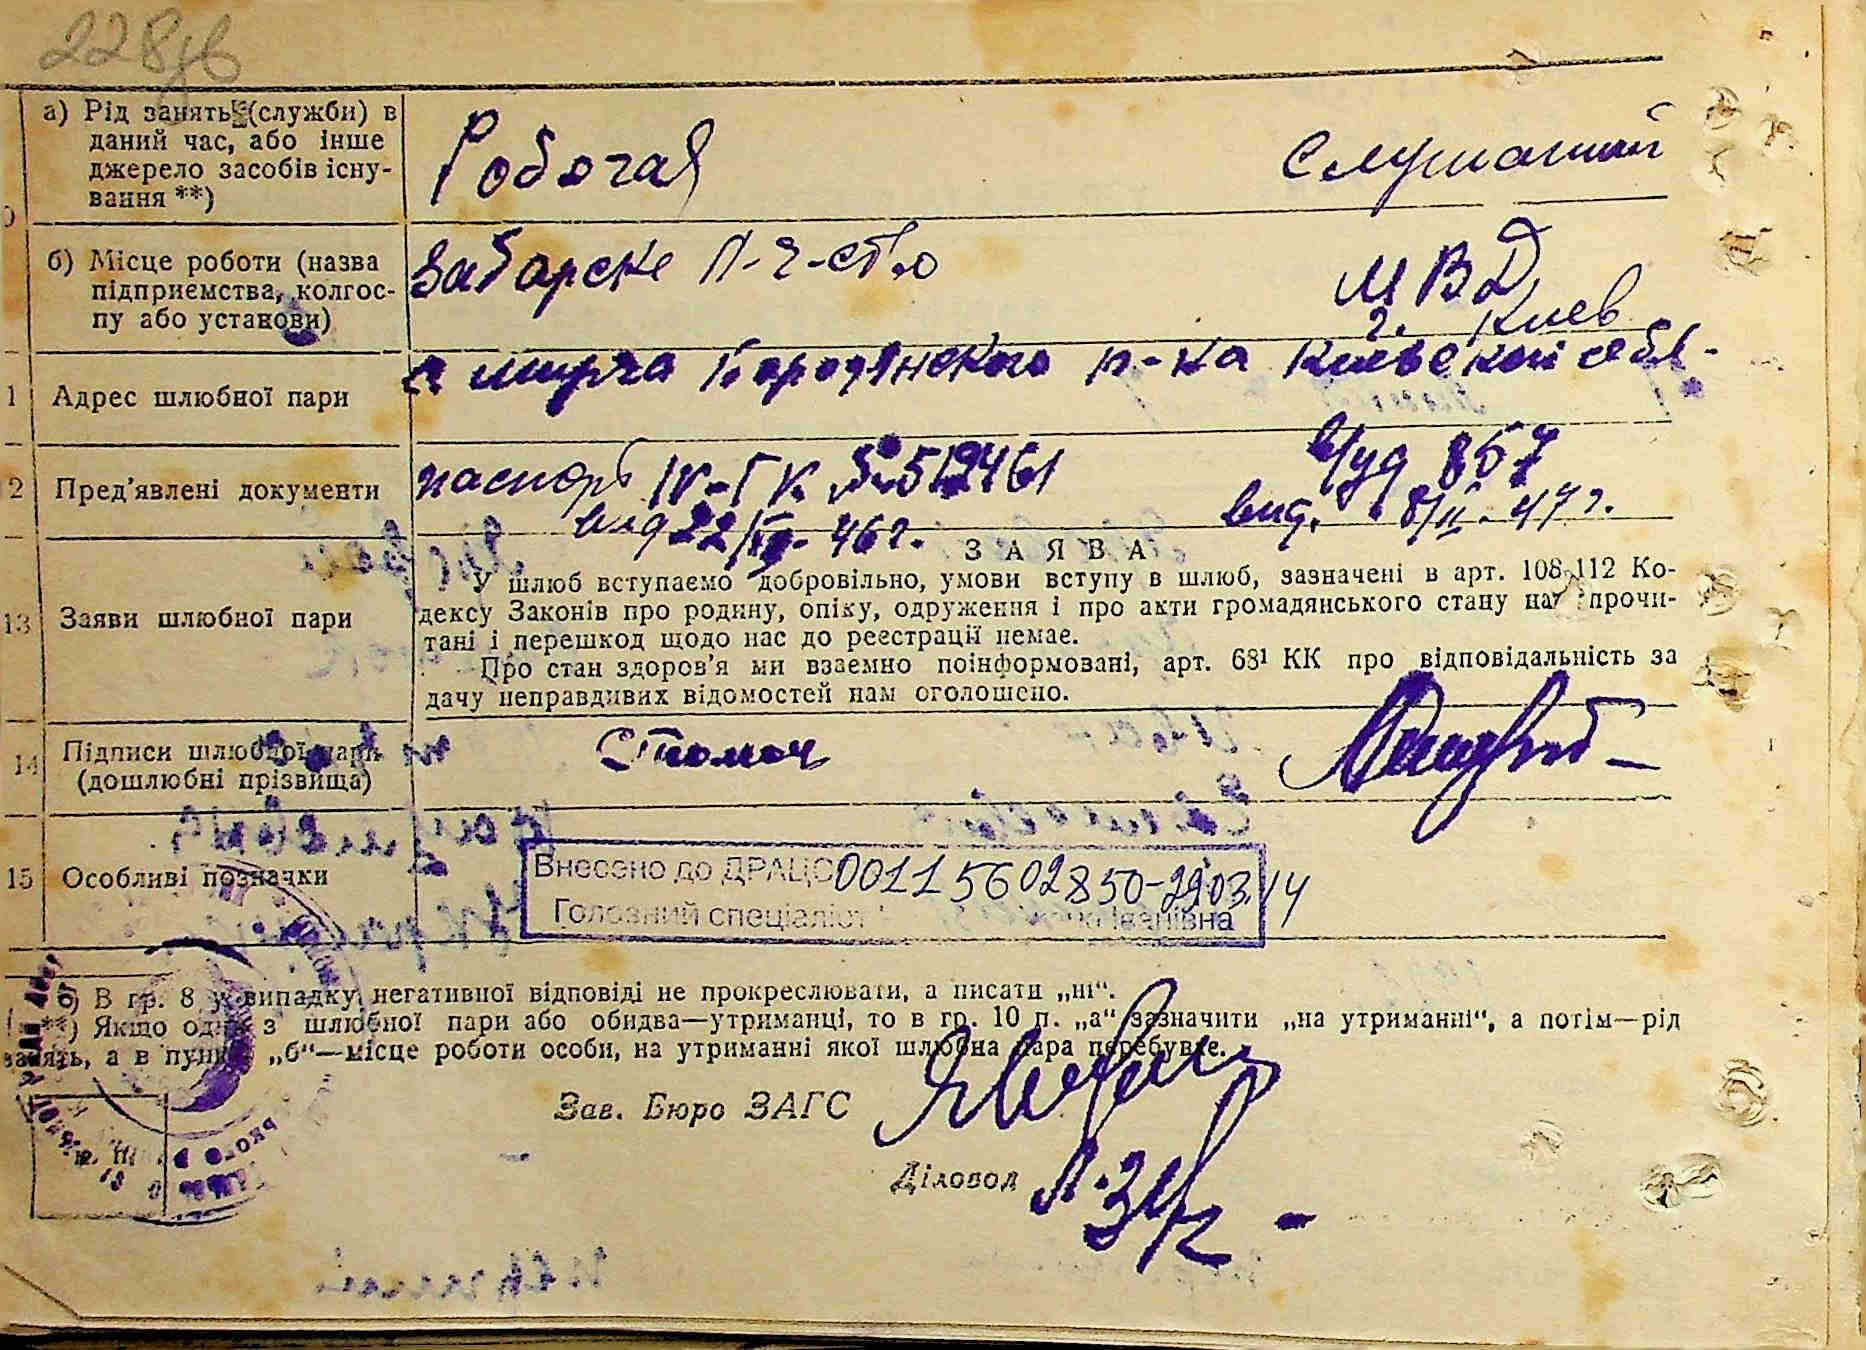 228зв
а) Рід занять (служби) в
даний час, або інше
джерело засобів існу-
вання **)
Робочая
служащий
б) Місце роботи (назва
підприємства, колгос-
пу або установи)
Забарске л-ч-ство
МВД
г. Киев
1 Адрес шлюбної пари
с мирча Бородянского р-на Киевской обл-
2 Пред'явлені документи
паспорт IV-ГК № 519461
вид 22/ 46 г.
у/уд 857
вид. 8/II-47 г.
13 Заяви шлюбної пари
ЗАЯВА
У шлюб вступаємо добровільно, умови вступу в шлюб, зазначені в арт. 108-112 Ко-
дексу Законів про родину, опіку, одруження і про акти громадянського стану нами прочи-
тані і перешкод щодо нас до реєстрації немає.
Про стан здоров'я ми взаємно поінформовані, арт. 68¹ КК про відповідальність за
дачу неправдивих відомостей нам оголошено.
14 Підписи шлюбної пари
(дошлюбні прізвища)
15 Особливі позначки
Внесено до ДРАЦС 00115602850-29.03.14
Головний спеціаліст Іванівна
*) В гр. 8 у випадку негативної відповіді не прокреслювати, а писати „ні“.
**) Якщо один з шлюбної пари або обидва—утриманці, то в гр. 10 п. „а“ зазначити „на утриманні“, а потім—рід
занять, а в пункті „б“—місце роботи особи, на утриманні якої шлюбна пара перебуває.
Зав. Бюро ЗАГС
Діловод